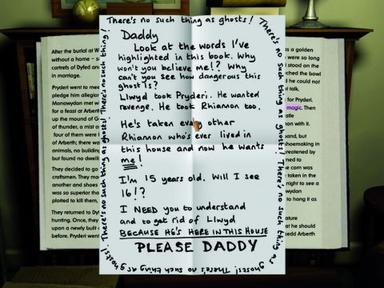 There's no such thing as ghosts!
There's no such thing as ghosts!
There's no such thing as ghosts!
There's no such thing!
There's no such thing!
Daddy
Look at the words I've
highlighted in this book. Why
won't you believe me!? Why
can't you see how dangerous this
ghost is?
Llwyd took Pryderi. He wanted
revenge. He took Rhiannon too.
He's taken every other
Rhiannon who's ever lived in
this house and now he wants
me!
I'm 15 years old. Will I see
16!?
I NEED you to understand
and to get rid of Llwyd
BECAUSE HE'S HERE IN THIS HOUSE
PLEASE DADDY
After the burial at W
without
contrels of Dyfed and
in marriage.
Pryderi went to meet
pledge him allegianc
Manawydan met with
for a feast at Arberth
up the mound of G
of thunder, a mist c
four of them were l
of Arberth; there wa
animals, no building
but found no dwell
They decided to go
craftsmen. They ma
another and shoes
was so superior tha
plotted to kill them,
They returned to Dy
hunting. Once, they
upon a newly built
before. Pryderi went
as a golden
were so
stood on the
ched the bowl
d could not
told
for Pryderi.
magic. Then
stle
on with it.
band,
shoemaking in
destroyed by
he corn was
taken in the
ght to see a
wydan
hanged to
d
must be
at this
said Arberth